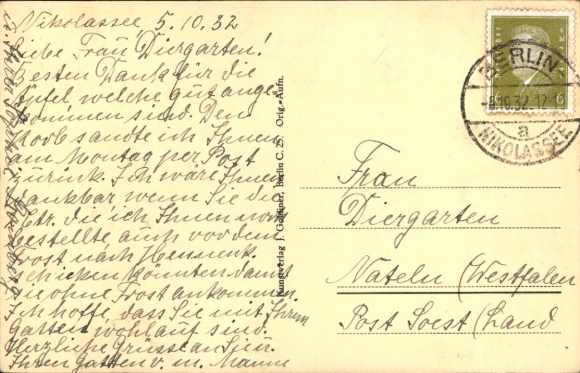 Nikolassee, 5.10.32
Liebe Frau Diergarten!
Besten Dank für die
Äpfel, welche gut ange-
kommen sind. Den
Korb sandte ich Ihnen
am Montag per Post
zurück. Ich wäre Ihnen
dankbar wenn Sie die
Ztr. die ich Ihnen
bestellte, auch vor dem
Frost nach
schicken könnten damit
sie ohne Frost ankommen.
Ich hoffe, dass Sie mit Ihrem
Gatten wohlauf sind.
Herzliche Grüsse an Sie u.
Ihren Gatten v. m. Manne
Kunstverlag J. Goldiner, Berlin C. 25. Orig.-Aufn.
6
BERLIN-
10.32.12
a
NIKOLASSEE
Frau
Diergarten
Nateln (Westfalen
Post Soest (Land